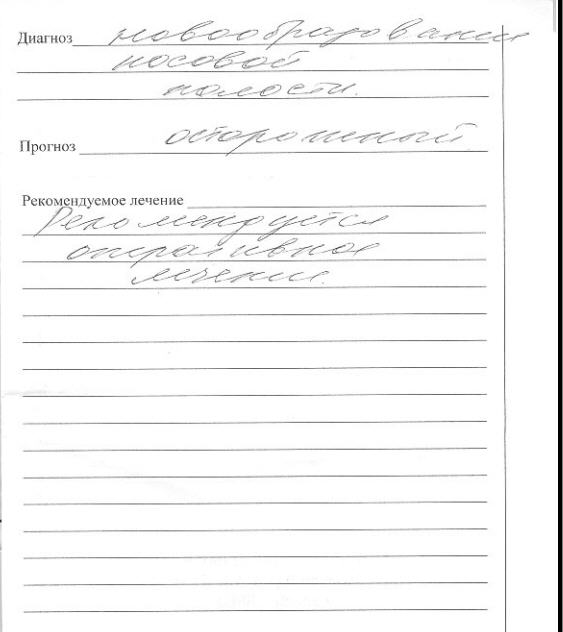 Диагноз новообразование
носовой
полости.
Прогноз осторожный
Рекомендуемое лечение
Рекомендуется
оперативное
лечение.